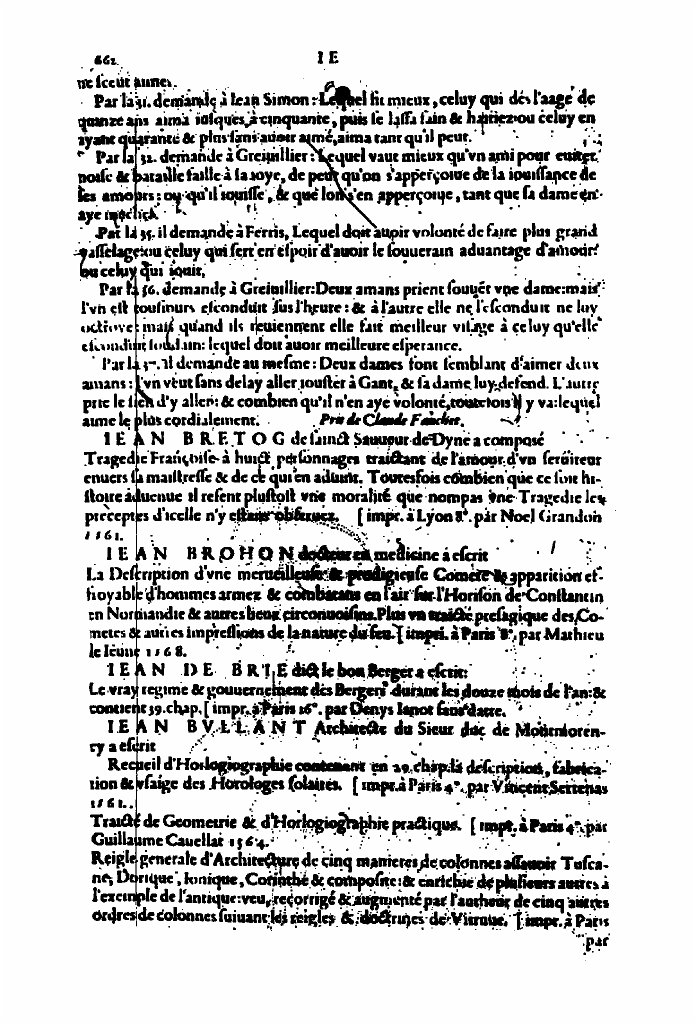 662. I E
ne sceut aimer.
Par la 31. demande à Iean Simon: Lequel fit mieux, celuy qui dés l'aage de
quinze ans aima iusques à cinquante, puis se lassa sain & haitiez: ou celuy en
ayant quarante & plus sans auoir aimé, aima tant qu'il peut.
Par la 32. demande à Greiuillier: Lequel vaut mieux qu'vn ami pour euiter
noise & bataille faille à sa ioye, de peur qu'on s'apperçoiue de la iouissance de
ses amours: ou qu'il iouisse, & que lon s'en apperçoiue, tant que sa dame en
aye meschief.
Par la 35. il demande à Ferris, Lequel doit auoir volonté de faire plus grand
vasselage: ou celuy qui sert en espoir d'auoir le souuerain aduantage d'amour:
ou celuy qui iouit.
Par la 36. demande à Greiuillier: Deux amans prient souuēt vne dame: mais
l'vn est tousiours esconduit sus l'heure: & à l'autre elle ne l'esconduit ne luy
octroye: mais quand ils reuiennent elle fait meilleur visage à celuy qu'elle
esconduit lequel doit auoir meilleure esperance.
Par la 37. il demande au mesme: Deux dames font semblant d'aimer deux
amans: l'vn veut sans delay aller iouster à Gant, & sa dame luy defend. L'autre
prie le sien d'y aller: & combien qu'il n'en aye volonté, toutefois il y va: lequel
aime le plus cordialement. Pris de Claude Fauchet.
IEAN BRETOG de sainct Sauueur de Dyne a composé
Tragedie Françoise à huict personnages traictant de l'amour d'vn seruiteur
enuers sa maistresse & de ce qui en aduint. Toutesfois combien que ce soit hi-
stoire aduenue il resent plustost vne moralité que nompas vne Tragedie les
preceptes d'icelle n'y estans obseruez. [impr. à Lyon 8°. par Noel Grandon
1561.
IEAN BROHON docteur en medicine a escrit
La Description d'vne merueilleuse & prodigieuse Comete & apparition ef-
froyable d'hommes armez & combatans en l'air sur l'Horison de Constantin
en Normandie & autres lieux circonuoisins. Plus vn traicté presagique des Co-
metes & autres impressions de la nature du feu. [impri. à Paris 8°. par Mathieu
le Ieune 1568.
IEAN DE BRIE dict le bon Berger a escrit:
Le vray regime & gouuernement des Bergers durant les douze mois de l'an: &
contient 39. chap. [impr. à Paris 16°. par Denys Ianot sans datte.
IEAN BVLLANT Architecte du Sieur duc de Montmoren-
cy a escrit
Recueil d'Horlogiographie contenant en 29. chap. la description, fabrica-
tion & vsaige des Horologes solaires. [impr. à Paris 4°. par Vincent Sertenas
1561.
Traicté de Geometrie & d'Horlogiographie practique. [impr. à Paris 4°. par
Guillaume Cauellat 1564.
Reigle generale d'Architecture de cinq manieres de colonnes assauoir Tusca-
ne, Dorique, Ionique, Corinthe & composite: & enrichie de plusieurs autres à
l'exemple de l'antique: veu, recorrigé & augmenté par l'autheur de cinq autres
ordres de colonnes suiuant les reigles & doctrines de Vitruue. [impr. à Paris
par